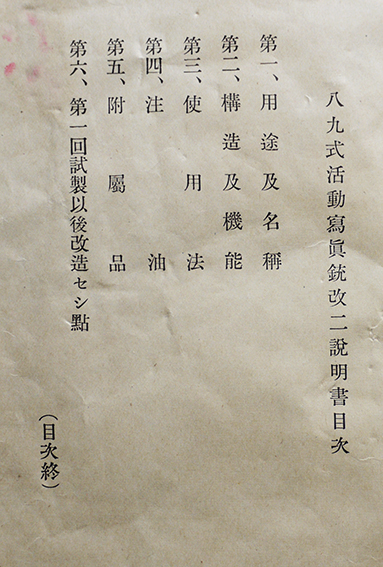 八九式活動寫眞銃改二說明書目次
第一、用途及名稱
第二、構造及機能
第三、使用法
第四、注油
第五、附屬品
第六、第一回試製以後改造セシ點
（目次終）